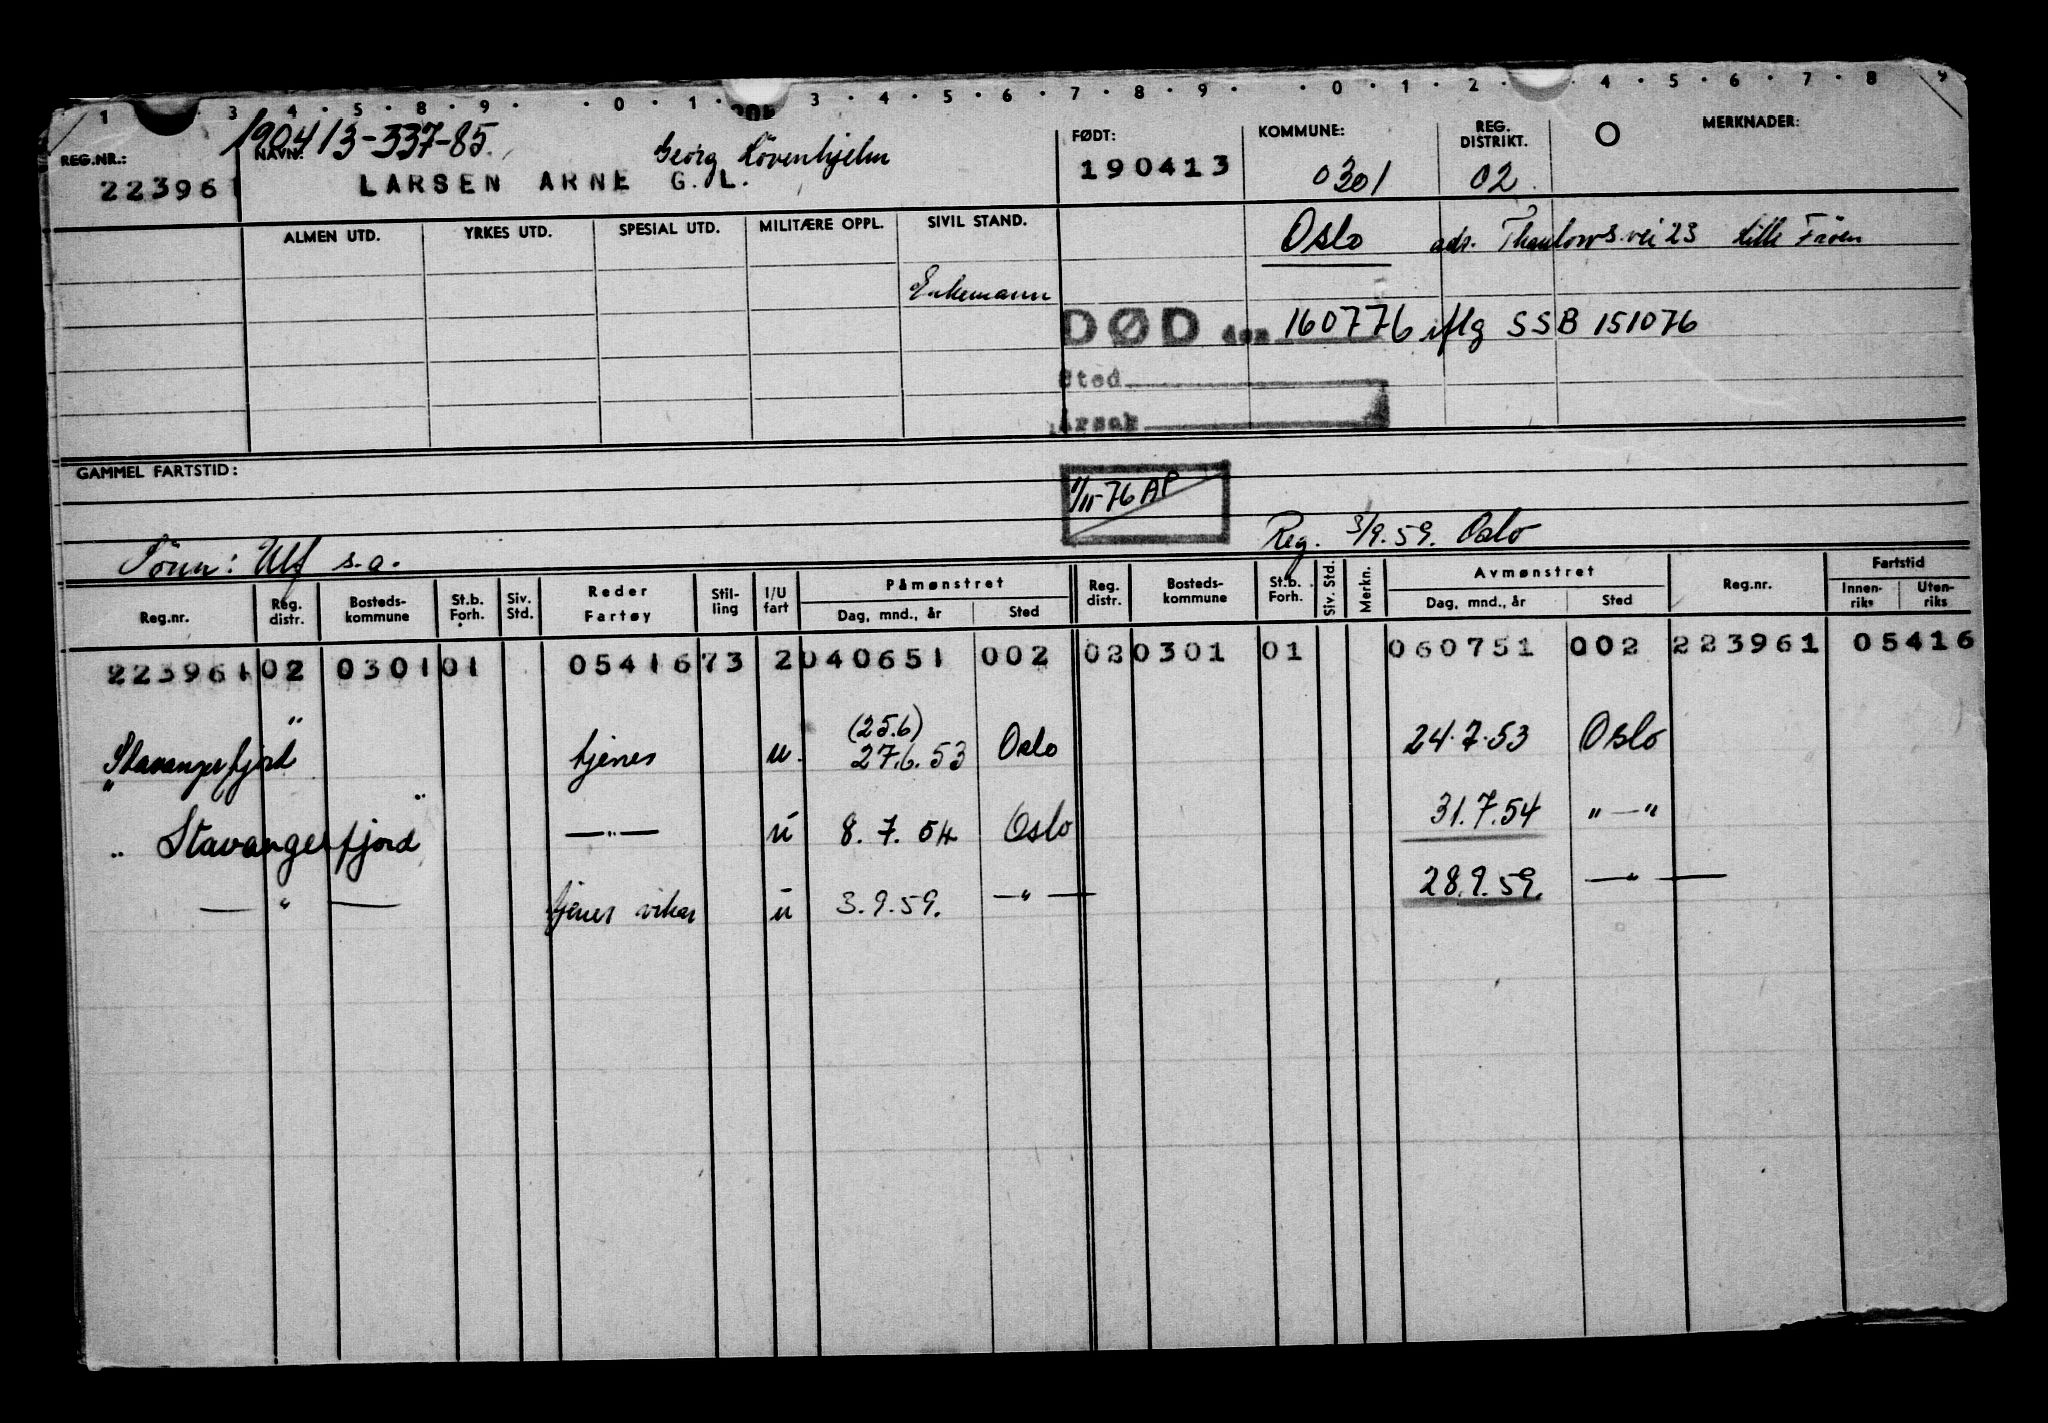 1 · 3 · 4 · 5 · 8 · 9 · · 0 · 1 · 3 · 4 · 5 · 6 · 7 · 8 · 9 · · 0 · 1 · 2 · 4 · 5 · 6 · 7 · 8 · 9
190413-337-85.
REG.NR.: NAVN: Georg Lövenhjelm FØDT: KOMMUNE: REG. DISTRIKT. MERKNADER:
223961 LARSEN ARNE G. L. 190413 0301 02
ALMEN UTD. YRKES UTD. SPESIAL UTD. MILITÆRE OPPL. SIVIL STAND.
Oslo adr. Thaulows vei 23 Lille Frøen
Enkemann
DØD den 160776 iflg SSB 151076
Sted
Årsak
GAMMEL FARTSTID:
1/11-76 AP
Reg. 3/9.59. Oslo
Sönn: Ulf s.a.
Reg.nr. Reg. distr. Bosteds-kommune St.b. Forh. Siv. Std. Reder Fartøy Stil-ling I/U fart Påmønstret Dag, mnd., år Sted Reg. distr. Bosteds-kommune St.b. Forh. Siv. Std. Merkn. Avmønstret Dag, mnd., år Sted Reg.nr. Fartstid Innen-riks Uten-riks
223961 02 0301 01 05416 73 2 040651 002 02 0301 01 060751 002 223961 05416
"Stavangerfjord" tjener u. (25.6) 27.6.53 Oslo 24.7.53 Oslo
" Stavangerfjord" —"— u 8.7.54 Oslo 31.7.54 "—"
— " — tjener vikar u 3.9.59. —"— 28.9.59. —"—